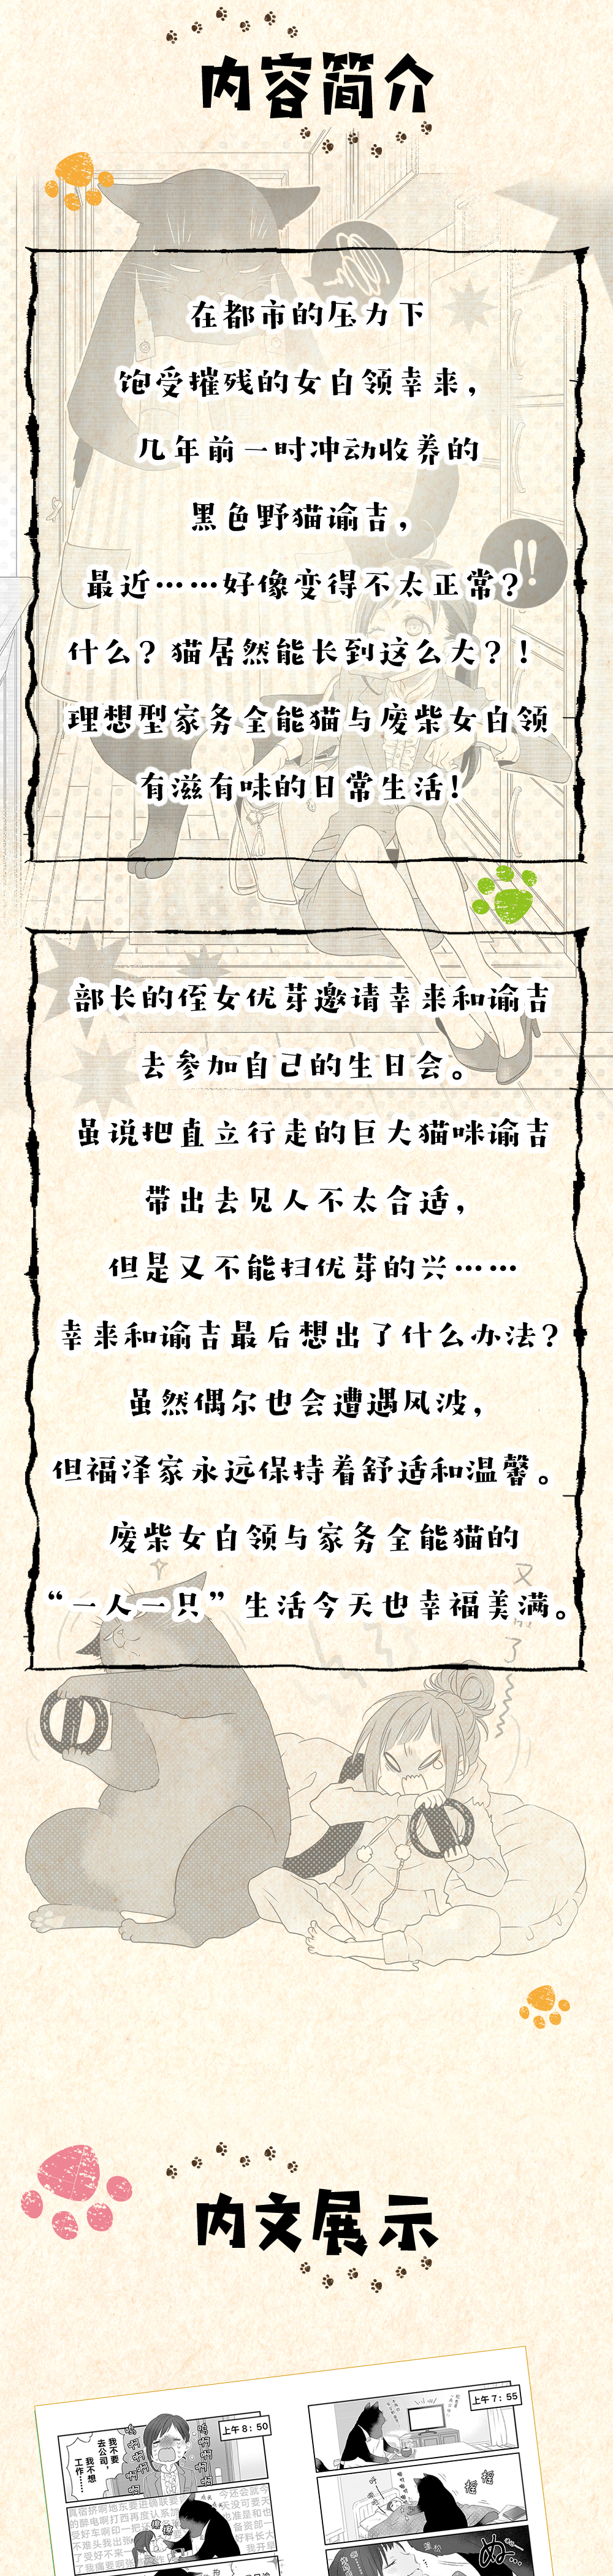 内容简介
在都市的压力下
饱受摧残的女白领幸来，
几年前一时冲动收养的
黑色野猫谕吉，
最近……好像变得不太正常？
什么？猫居然能长到这么大？！
理想型家务全能猫与废柴女白领
有滋有味的日常生活！
!!
部长的侄女优芽邀请幸来和谕吉
去参加自己的生日会。
虽说把直立行走的巨大猫咪谕吉
带出去见人不太合适，
但是又不能扫优芽的兴……
幸来和谕吉最后想出了什么办法？
虽然偶尔也会遭遇风波，
但福泽家永远保持着舒适和温馨。
废柴女白领与家务全能猫的
“一人一只”生活今天也幸福美满。
内文展示
上午7：55
摇
摇
上午8：50
我不要
去公司，
我不想
工作……